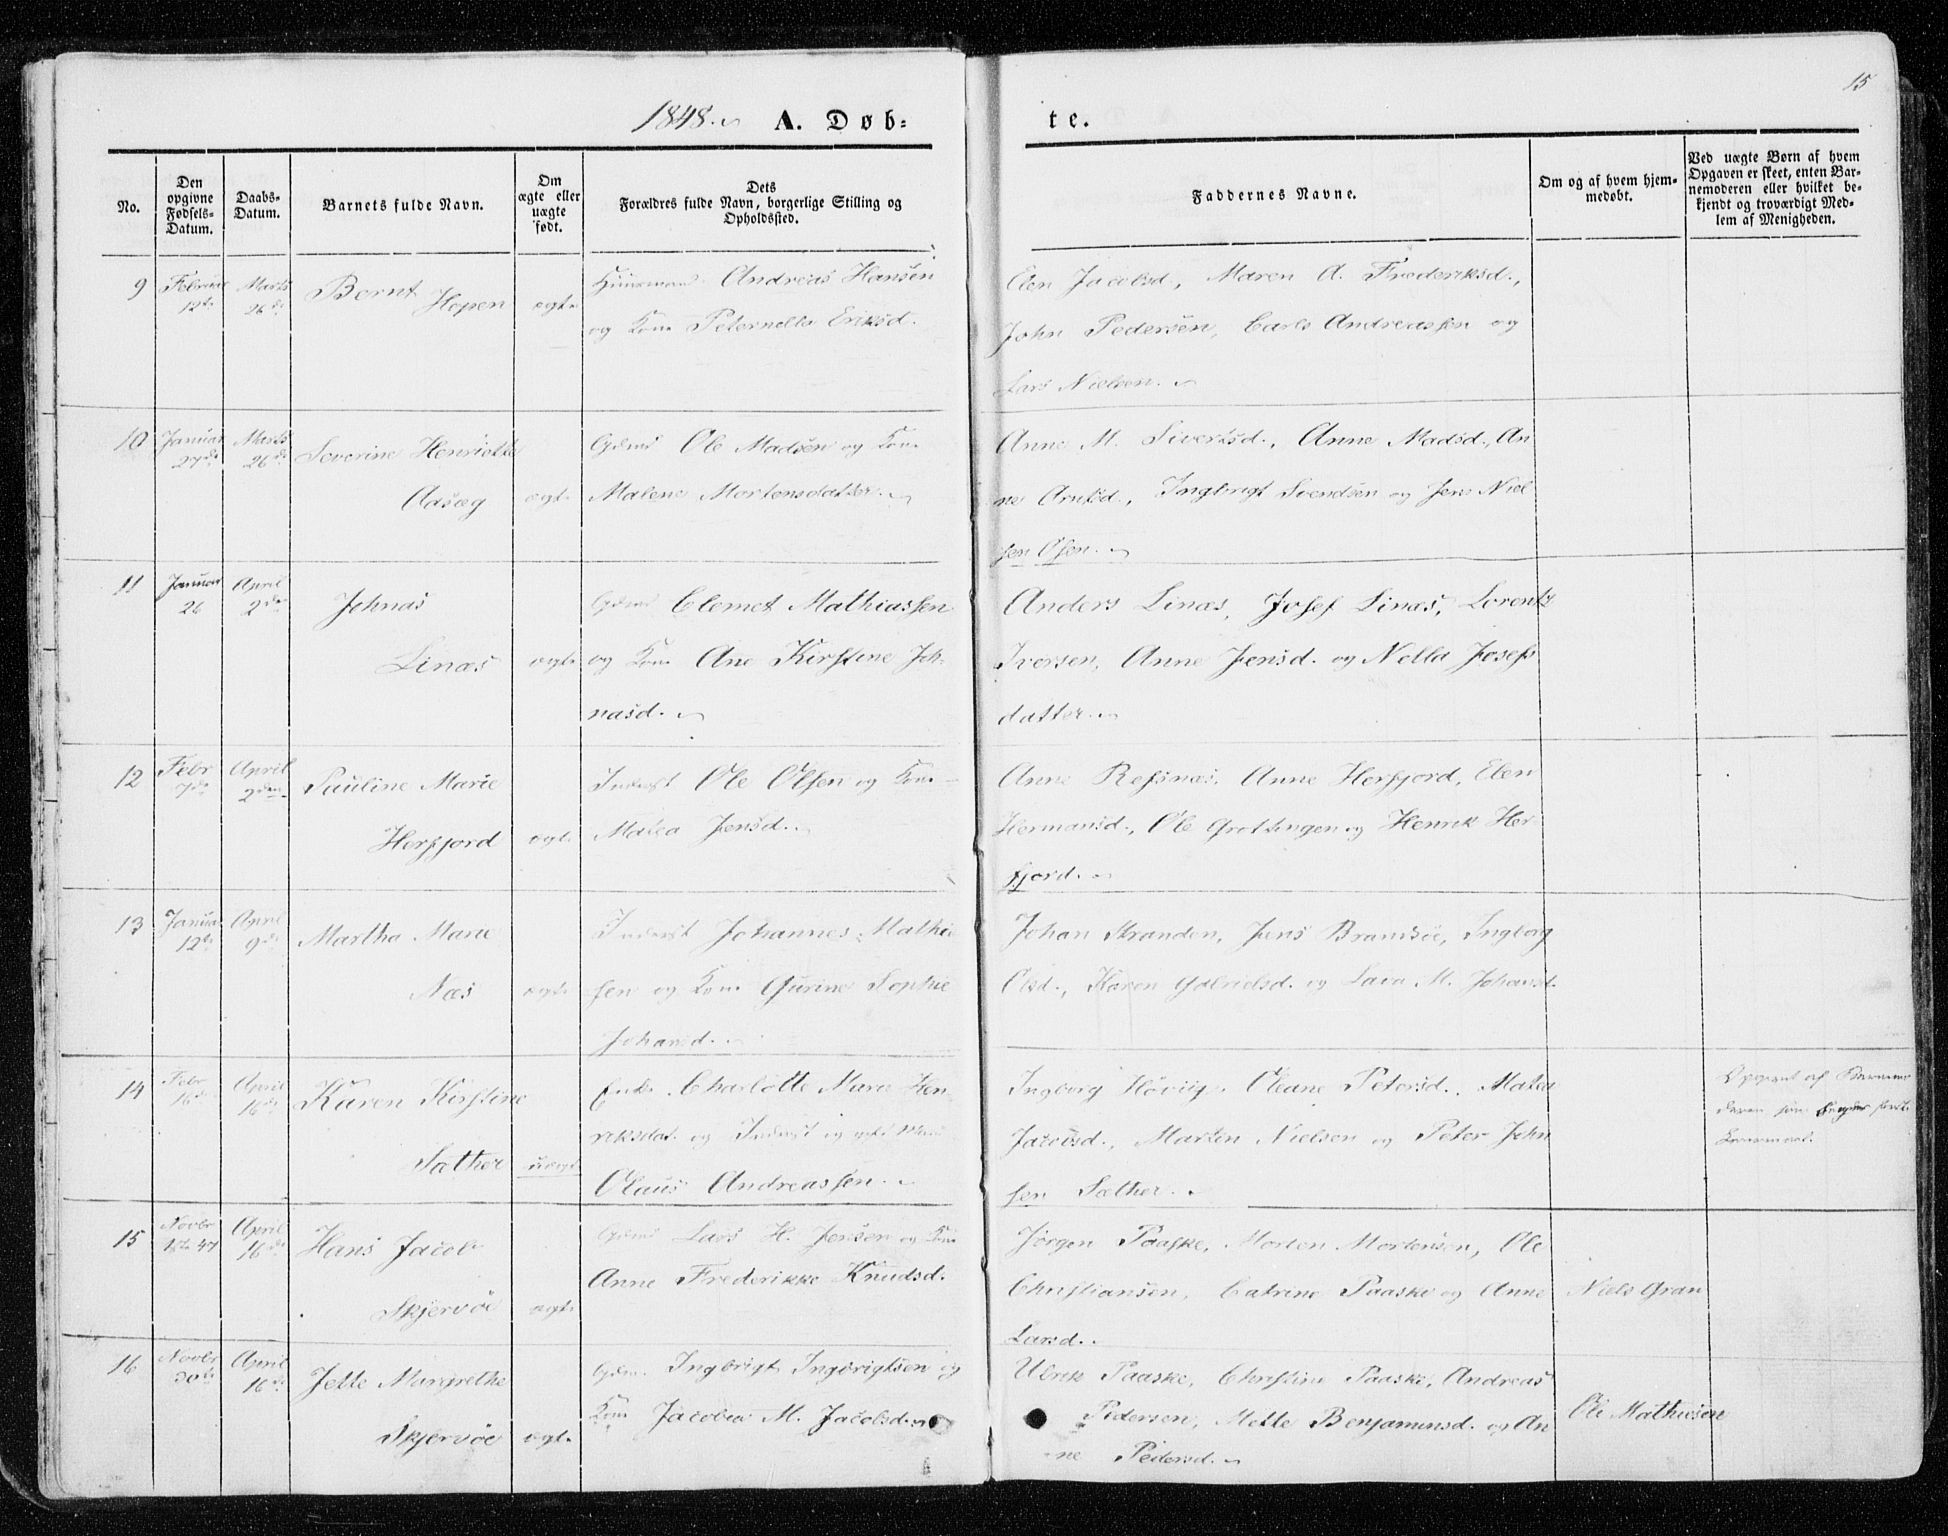 15
1848. A. Døb-
te.
No.
Den
opgivne
Fødsels-
Datum.
Daabs-
Datum.
Barnets fulde Navn.
Om
ægte eller
uægte
født.
Dets
Forældres fulde Navn, borgerlige Stilling og
Opholdssted.
Faddernes Navne.
Om og af hvem hjem-
medøbt.
Ved uægte Børn af hvem
Opgaven er skeet, enten Bar-
nemoderen eller hvilket be-
kjendt og troværdigt Med-
lem af Menigheden.
9
Februar
12te
Marts
26de
Bernt
Hopen
ægte
Huusmand Andreas Hansen
og Kone Peternella Eriksd.
Elen Jacobsd., Maren A. Frederiksd.,
John Pedersen, Carls Andreassen og
Lars Nielsen.
10
Januar
27de
Marts
26de
Severine Henriette
Aasæg
ægte
Gdmd Ole Madsen og Kone
Malene Mortensdatter.
Anne M. Sivertsd., Anne Madsd., An-
ne Arntsd., Ingbrigt Svendsen og Jens Niel-
sen Osen.
11
Januar
26
April
2den
Johnas
Linæs
ægte
Gdmd Clemet Mathiassen
og Kone Ane Kirstine Joh-
nasd.
Anders Linæs, Josef Linæs, Lorentz
Iversen, Anne Jensd. og Nella Josefs
datter.
12
Febr
7de
April
2den
Pauline Marie
Herfjord
ægte
Inderst Ole Olsen og Kone
Malea Jensd.
Anne Refsnæs, Anne Herfjord, Elen
Hermansd., Ole Grottingen og Henrik Her-
fjord.
13
Januar
12te
April
9de
Martha Marie
Næs
ægte
Inderst Johannes Mathie
sen og Kone Gurine Sophie
Johansd.
Johan Stranden, Jens Brandsøe, Ingborg
Olsd., Karen Gabrielsd. og Lava M. Johansd.
14
Febr
16de
April
16de
Karen Kirstine
Sæther
uægte
Enke Charlotte Marie Hen-
riksdat. og Inderst og gift Mand
Olaus Andreassen.
Ingborg Høviig, Oleane Petersd., Malea
Jacobsd., Martin Nielsen og Peter John
sen Sæther.
Opgivet af Barnemo
deren som
15
Novbr
18de 47
April
16de
Hans Jacob
Skjervøe
ægte
Gdmd Lars H. Jensen og Kone
Anne Frederikke Knudsd.
Jørgen Paaske, Morten Mortensen, Ole
Christiansen, Catrine Paaske og Anne
Larsd.
Niels Gran
16
Novbr
30te
April
16de
Jette Margrethe
Skjervøe
ægte
Gdmd. Ingbrigt Ingbrigtsen og
Kone Jacobea M. Jacobsd.
Ulrik Paaske, Christine Paaske, Andreas
Pedersen, Mette Benjaminsd. og An
ne Pedersd.
Ole Mathiesen